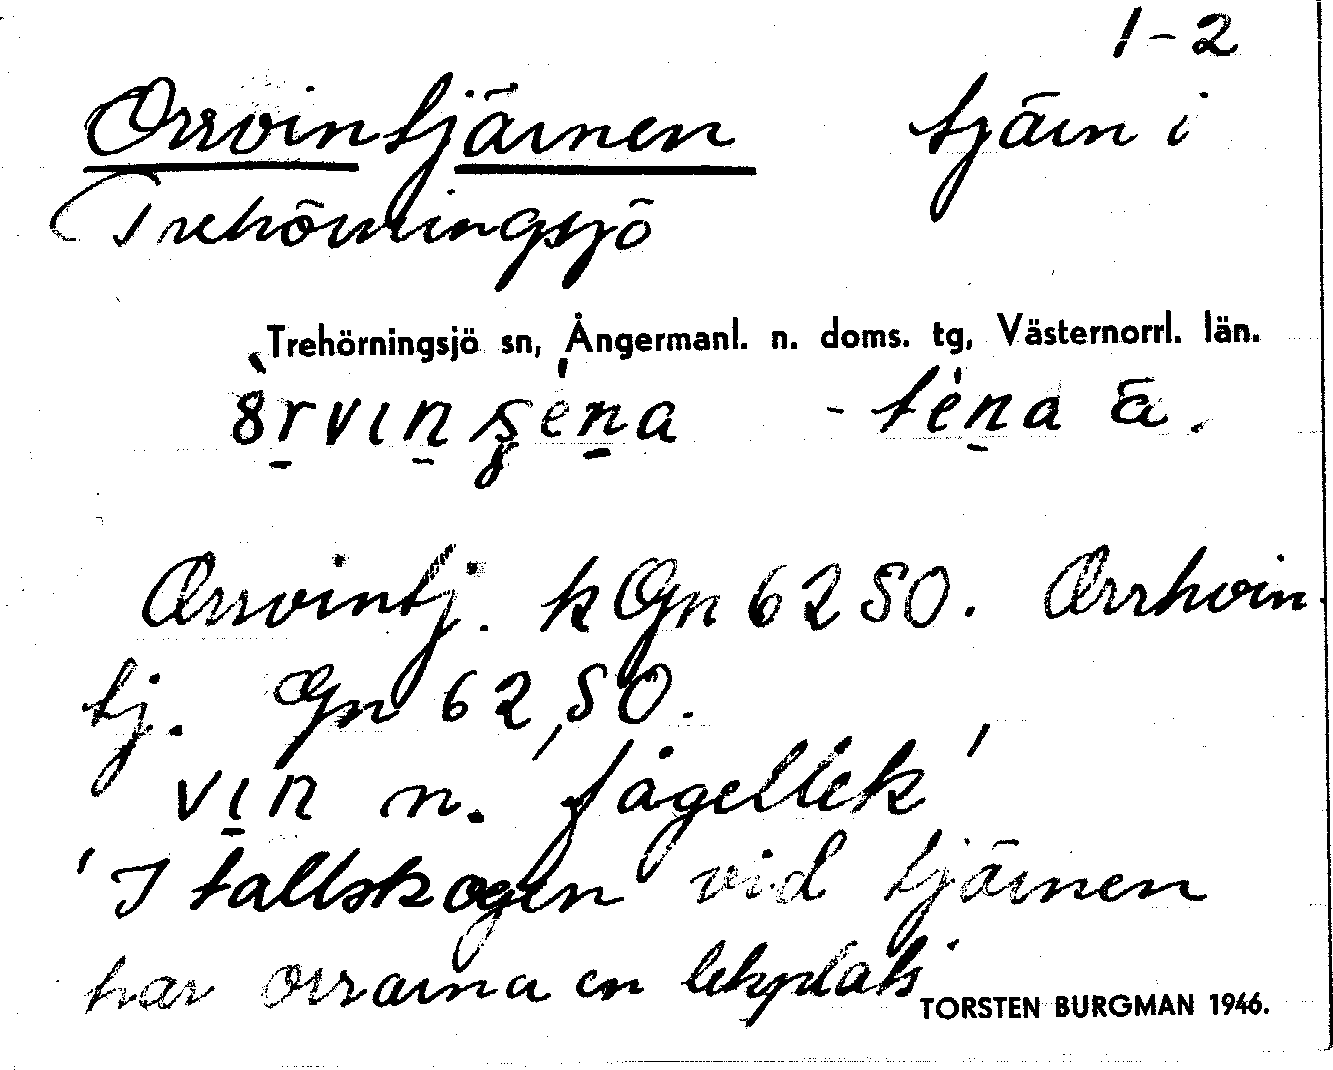 1-2
Orrvintjärnen tjärn i
Trehörningsjö
Trehörningsjö sn, Ångermanl. n. doms. tg, Västernorrl. län.
Orrvintj. kGn 62 SO. Orrhvin
tj. Gn 62 SO.
vın n. 'fågellek'
'I tallskogen vid tjärnen
har orrarna en lekplats'
TORSTEN BURGMAN 1946.